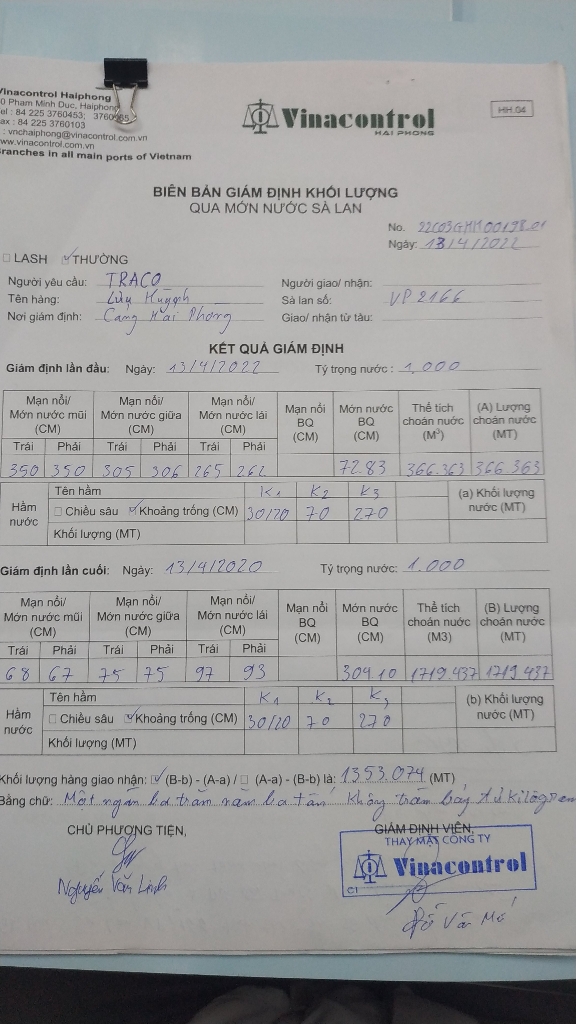 Vinacontrol Haiphong
0 Pham Minh Duc, Haiphong
el : 84 225 3760453; 3760
ax : 84 225 3760103
: vnchaiphong@vinacontrol.com.vn
www.vinacontrol.com.vn
ranches in all main ports of Vietnam
Vinacontrol
HAI PHONG
HH.04
BIÊN BẢN GIÁM ĐỊNH KHỐI LƯỢNG
QUA MỚN NƯỚC SÀ LAN
No. 22G03GHH00198.01
Ngày: 13/4/2022
LASH THƯỜNG
Người yêu cầu: TRACO Người giao/ nhận:
Tên hàng: Lưu Huỳnh Sà lan số: VP 2166
Nơi giám định: Cảng Hải Phòng Giao/ nhận từ tàu:
KẾT QUẢ GIÁM ĐỊNH
Giám định lần đầu: Ngày: 13/4/2022 Tỷ trọng nước : 1,000
Mạn nổi/ Mớn nước mũi (CM) Mạn nổi/ Mớn nước giữa (CM) Mạn nổi/ Mớn nước lái (CM) Mạn nổi BQ (CM) Mớn nước BQ (CM) Thể tích choán nước (M³) (A) Lượng choán nước (MT)
Trái Phải Trái Phải Trái Phải
350 350 305 306 265 262 72.83 366.363 366.363
Hầm nước Tên hầm K1 K2 K3 (a) Khối lượng nước (MT)
Chiều sâu Khoảng trống (CM) 30/20 70 270
Khối lượng (MT)
Giám định lần cuối: Ngày: 13/4/2020 Tỷ trọng nước: 1.000
Mạn nổi/ Mớn nước mũi (CM) Mạn nổi/ Mớn nước giữa (CM) Mạn nổi/ Mớn nước lái (CM) Mạn nổi BQ (CM) Mớn nước BQ (CM) Thể tích choán nước (M3) (B) Lượng choán nước (MT)
Trái Phải Trái Phải Trái Phải
68 67 75 75 97 93 304.10 1719.437 1719.437
Hầm nước Tên hầm K1 K2 K3 (b) Khối lượng nước (MT)
Chiều sâu Khoảng trống (CM) 30/20 70 270
Khối lượng (MT)
Khối lượng hàng giao nhận: (B-b) - (A-a) / (A-a) - (B-b) là: 1353.074 (MT)
Bằng chữ: Một ngàn ba trăm năm ba tấn không trăm bảy tư kilôgam
CHỦ PHƯƠNG TIỆN, GIÁM ĐỊNH VIÊN,
THAY MẶT CÔNG TY
Vinacontrol
C1
Nguyễn Văn Linh
Đỗ Văn